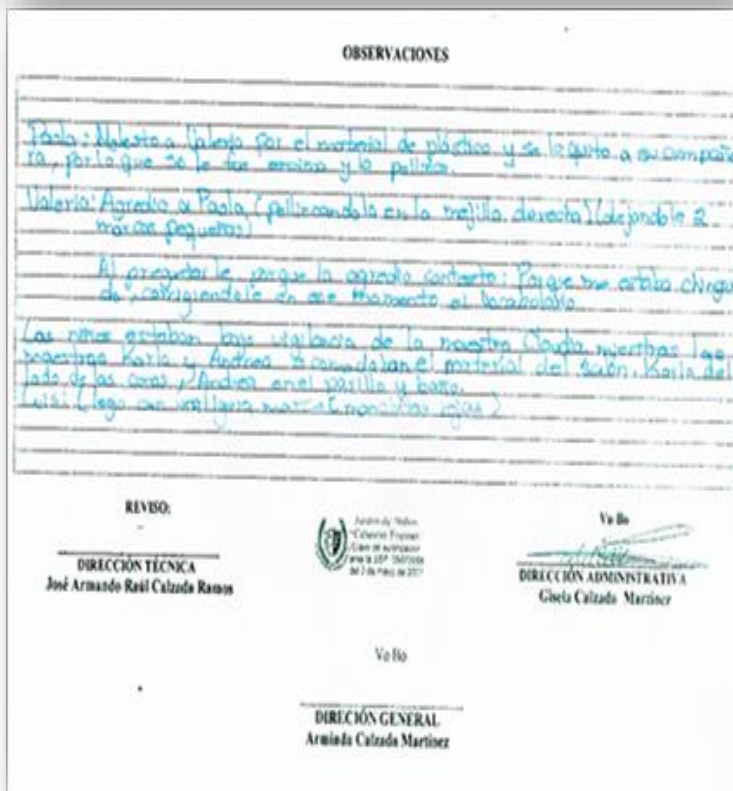 OBSERVACIONES
Paola: Molesto a Valeria por el material de plástico y se lo quito a su compañe
ra, por lo que se le fue encima y la pellizco.
Valeria: Agredio a Paola (pellizcandola en la mejilla derecha) (dejandole 2
marcas pequeñas)
Al preguntarle porque la agredio contesto: Porque me estaba chinga
do", corrigiendole en ese momento el vocabulario.
Las niñas estaban bajo vigilancia de la maestra Claudia mientras las
maestras Karla y Andrea acomodaban el material del salón. Karla del
lado de las y Andrea en el pasillo y baño.
REVISO:
DIRECCIÓN TÉCNICA
José Armando Raúl Calzada Ramos
Jardín de Niños
Vo Bo
DIRECCIÓN ADMINISTRATIVA
Gisela Calzada Martínez
Vo Bo
DIRECIÓN GENERAL
Armida Calzada Martínez